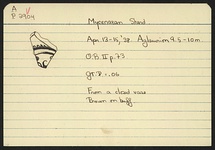 A
P 2904
Mycenaean Sherd
Apr. 13-15, '38 9.5-10m
O.B. II p. 73
= .06
From a closed vase
Brown on buff